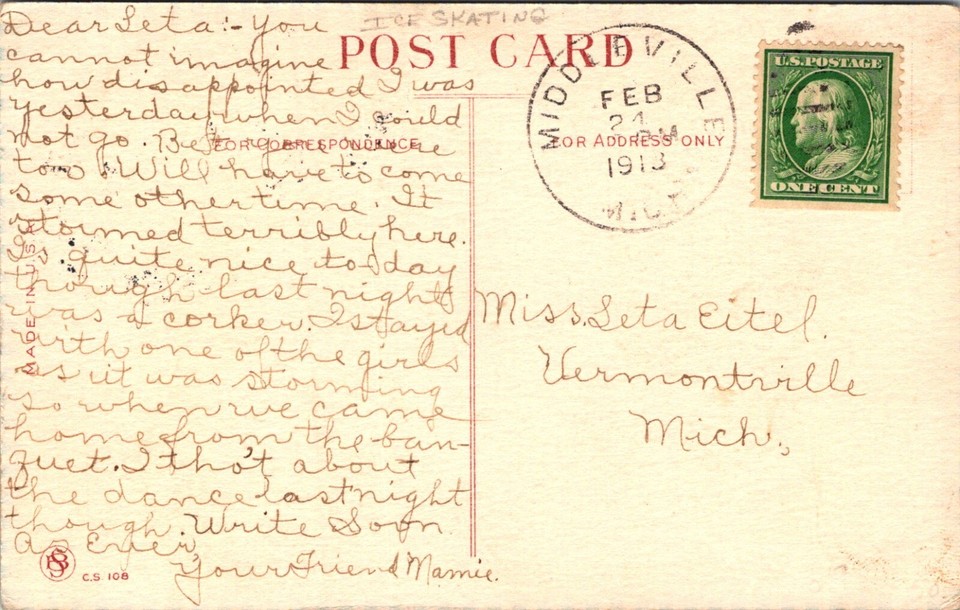 ICE SKATING
POST CARD
FOR CORRESPONDENCE
FOR ADDRESS ONLY
Dear Leta:- You
cannot imagine
how disappointed I was
yesterday when I could
not go. Bet you were
too. Will have to come
some other time. It
stormed terribly here.
Is quite nice to day
though last night
was a corker. I stayed
with one of the girls
as it was storming
so when we came
home from the ban-
quet. I tho't about
the dance last night
though. Write Soon
As Ever
Your Friend Mamie.
MIDDLEVILLE
FEB
24
PM
1913
MICH.
U.S. POSTAGE
ONE CENT
Miss. Leta Eitel.
Vermontville
Mich.,
MADE IN U.S.A.
C.S. 108